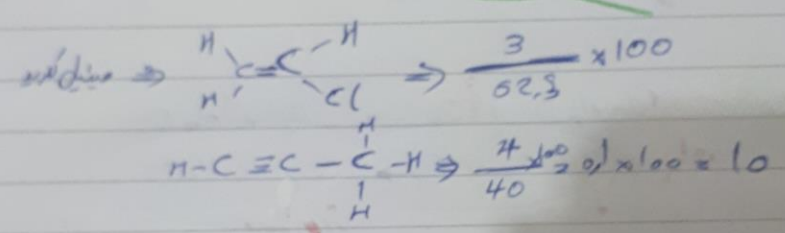 ⇒ H H C=C H Cl ⇒ 3/62,5 ×100
H-C≡C-C-H H H ⇒ 4/40 ×100 = 0,1×100 = 10